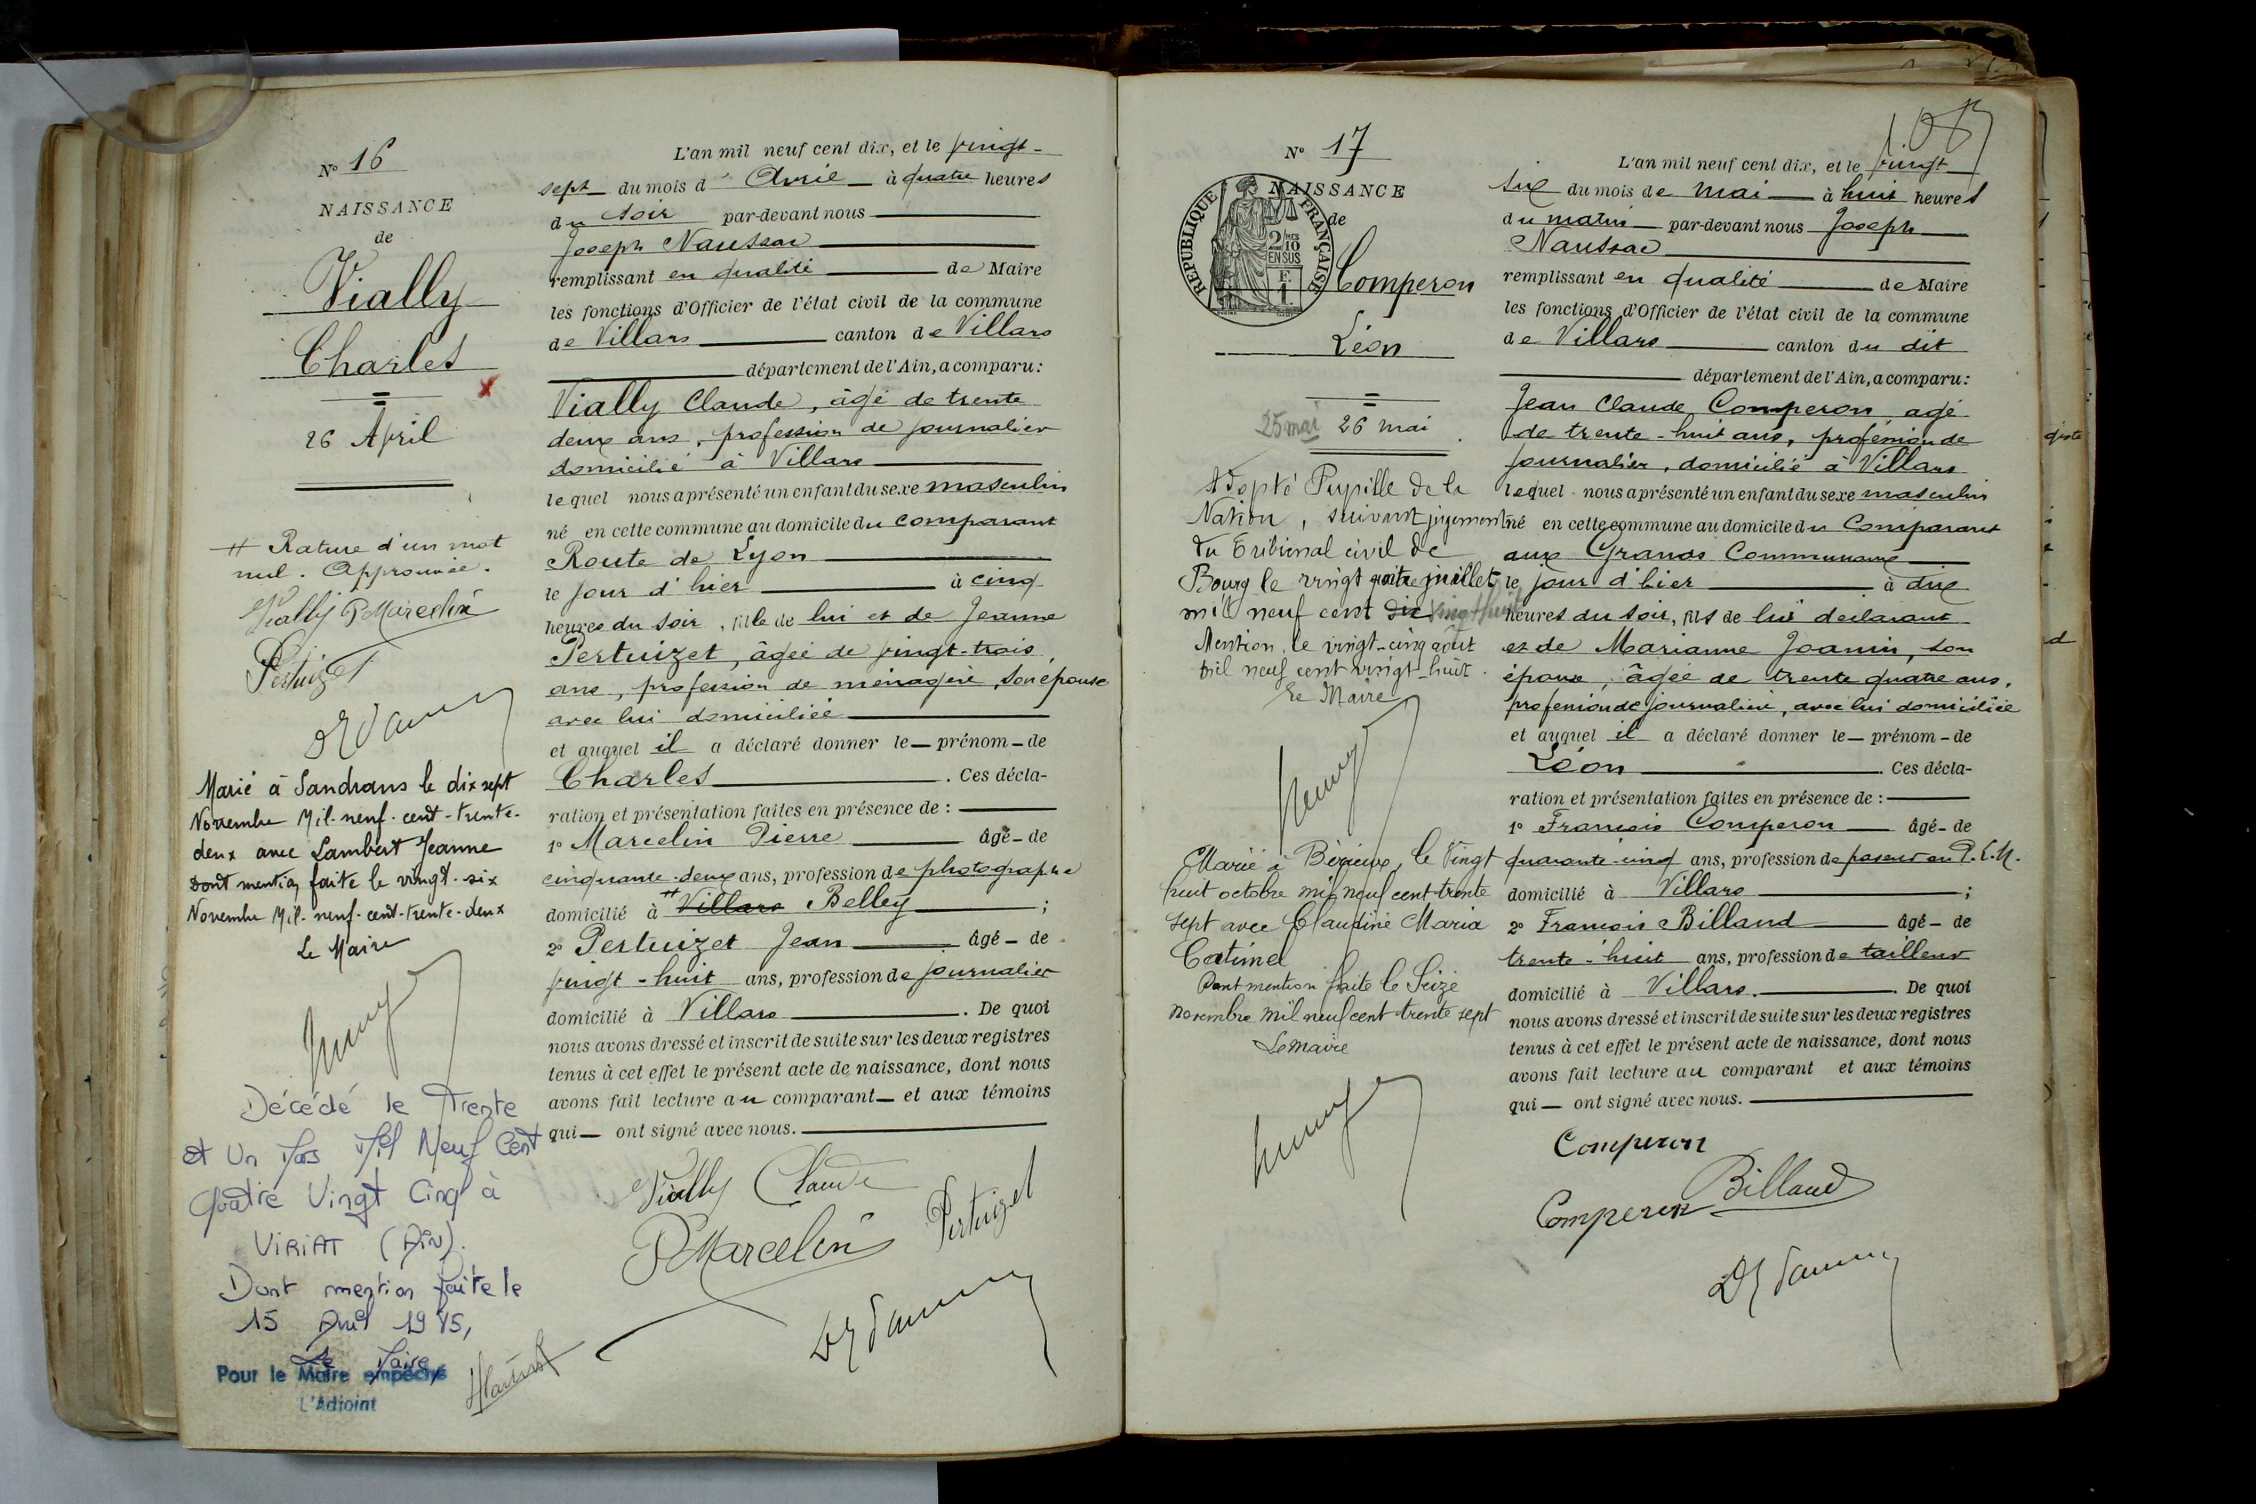 N° 16
NAISSANCE
de
Vially
Charles
26 Avril
# Rature d'un mot
nul. Approuvée.
Vially P Marcelin
Pertuizet
Marié à Sandrans le dix sept
Novembre Mil-neuf-cent-trente-
deux avec Lambert Jeanne
Dont mention faite le vingt-six
Novembre Mil-neuf-cent-trente-deux
Le Maire
Décédé le Trente
et Un Mars Mil Neuf Cent
Quatre Vingt Cinq à
VIRIAT (Ain).
Dont mention faite le
15 Avril 1985,
Le Maire
Pour le Maire empêché
L'Adjoint
L'an mil neuf cent dix, et le vingt-
sept du mois d'Avril à quatre heures
du soir par-devant nous
Joseph Naussac
remplissant en qualité de Maire
les fonctions d'Officier de l'état civil de la commune
de Villars canton de Villars
département de l'Ain, a comparu:
Vially Claude, âgé de trente
deux ans, profession de journalier
domicilié à Villars
lequel nous a présenté un enfant du sexe masculin
né en cette commune au domicile du comparant
Route de Lyon
le jour d'hier à cinq
heures du soir, fils de lui et de Jeanne
Pertuizet, âgée de vingt-trois
ans, profession de ménagère, son épouse
avec lui domiciliée
et auquel il a déclaré donner le prénom de
Charles. Ces décla-
ration et présentation faites en présence de :
1° Marcelin Pierre âgé de
cinquante-deux ans, profession de photographe
domicilié à # Villars Belley ;
2° Pertuizet Jean âgé de
vingt-huit ans, profession de journalier
domicilié à Villars. De quoi
nous avons dressé et inscrit de suite sur les deux registres
tenus à cet effet le présent acte de naissance, dont nous
avons fait lecture au comparant et aux témoins
qui ont signé avec nous.
Vially Claude
P Marcelin Pertuizet
N° 17
NAISSANCE
de
REPUBLIQUE FRANÇAISE
2/10
EN SUS
F.
1
Comperon
Léon
25 mai 26 mai
Adopté Pupille de la
Nation, suivant jugement
du Tribunal civil de
Bourg le vingt quatre juillet
mil neuf cent dix vingt huit
Mention le vingt-cinq août
mil neuf cent vingt-huit.
Le Maire
Marié à Birieux, le Vingt
huit octobre mil neuf cent trente
sept avec Claudine Maria
Catimel
Dont mention faite le Seize
novembre mil neuf cent trente sept
Le maire
L'an mil neuf cent dix, et le vingt
six du mois de mai à huit heures
du matin par-devant nous Joseph
Naussac
remplissant en qualité de Maire
les fonctions d'Officier de l'état civil de la commune
de Villars canton du dit
département de l'Ain, a comparu:
Jean Claude Comperon agé
de trente-huit ans, profession de
journalier, domicilié à Villars
lequel nous a présenté un enfant du sexe masculin
né en cette commune au domicile du Comparant
aux Grands Communaux
le jour d'hier à dix
heures du soir, fils de lui déclarant
et de Marianne Joanin, son
épouse, âgée de trente quatre ans,
profession de journalière, avec lui domiciliée
et auquel il a déclaré donner le prénom de
Léon. Ces décla-
ration et présentation faites en présence de :
1° François Comperon âgé de
quarante-cinq ans, profession de poseur au P.L.M.
domicilié à Villars ;
2° François Billand âgé de
trente-huit ans, profession de tailleur
domicilié à Villars. De quoi
nous avons dressé et inscrit de suite sur les deux registres
tenus à cet effet le présent acte de naissance, dont nous
avons fait lecture au comparant et aux témoins
qui ont signé avec nous.
Comperon
Comperon Billaud